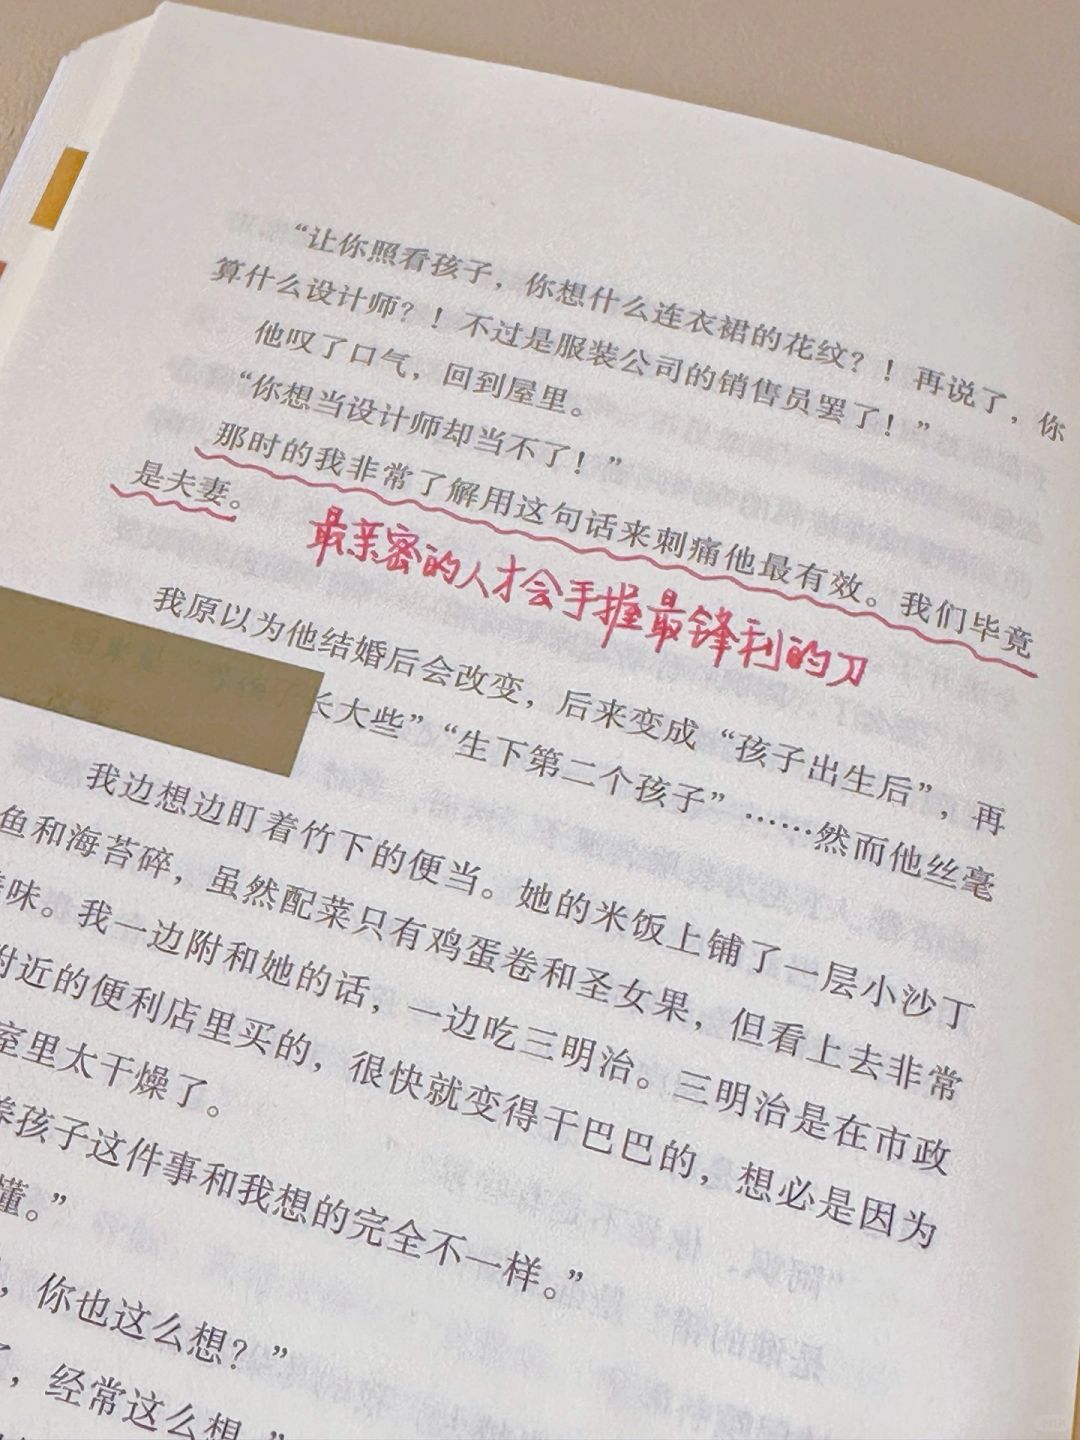 “让你照看孩子，你想什么连衣裙的花纹？！再说了，你
算什么设计师？！不过是服装公司的销售员罢了！”
他叹了口气，回到屋里。
“你想当设计师却当不了！”
那时的我非常了解用这句话来刺痛他最有效。我们毕竟
是夫妻。
最亲密的人才会手握最锋利的刀
我原以为他结婚后会改变，后来变成“孩子出生后”，再
长大些”“生下第二个孩子”……然而他丝毫
我边想边盯着竹下的便当。她的米饭上铺了一层小沙丁
鱼和海苔碎，虽然配菜只有鸡蛋卷和圣女果，但看上去非常
味。我一边附和她的话，一边吃三明治。三明治是在市政
附近的便利店里买的，很快就变得干巴巴的，想必是因为
室里太干燥了。
养孩子这件事和我想的完全不一样。”
懂。”
，你也这么想？”
，经常这么想。”